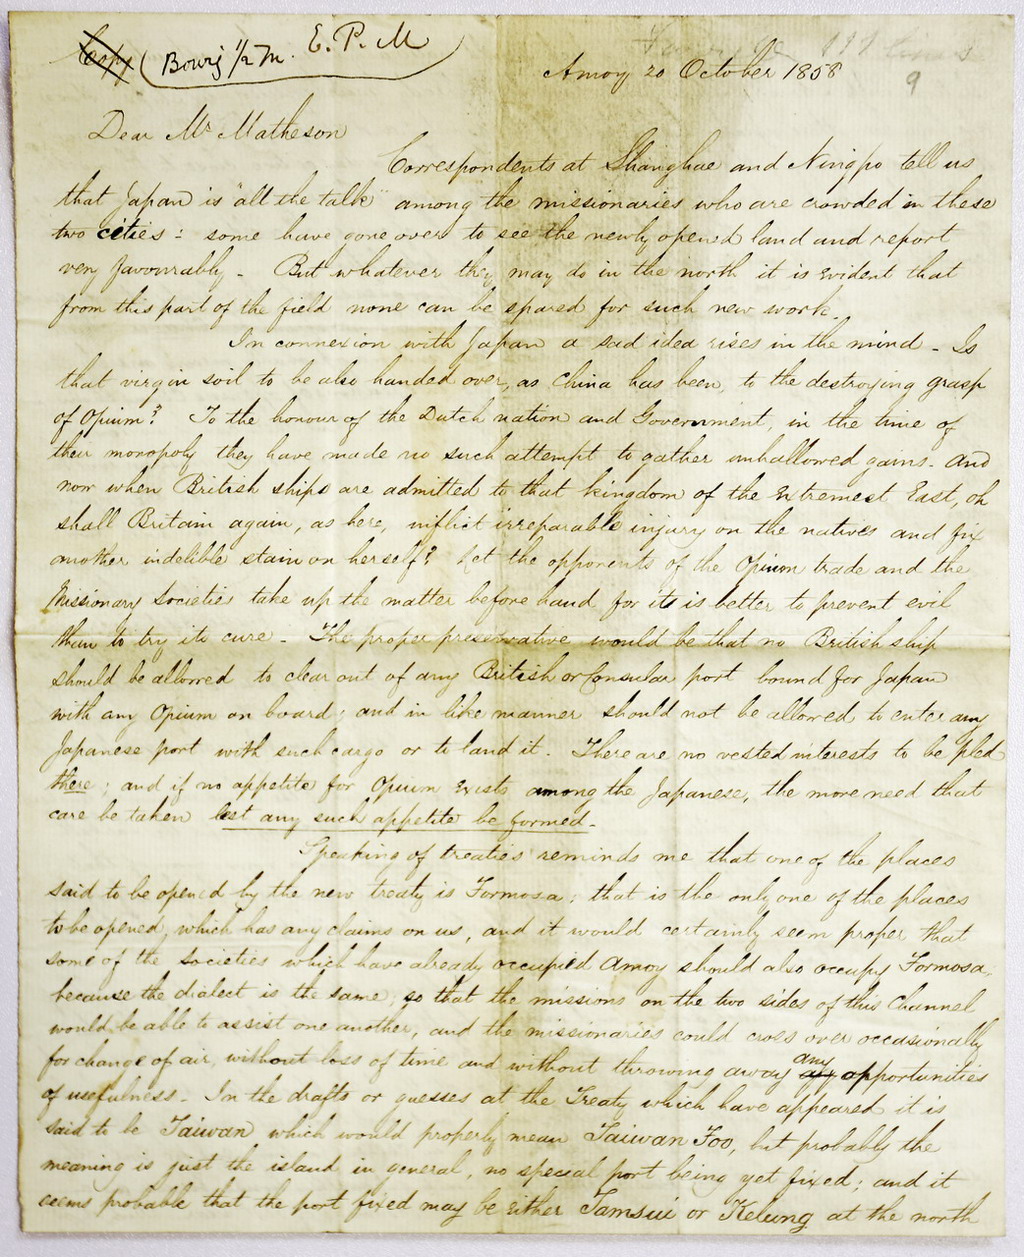 Copy (Bourg 1/2 m. E. P. M
Amoy 20 October 1858
9
Dear Mr Matheson
Correspondents at Shanghae and Ningpo tell us
that Japan is "all the talk" among the missionaries who are crowded in these
two cities: some have gone over to see the newly opened land and report
very favourably - But whatever they may do in the north it is evident that
from this part of the field none can be spared for such new work.
In connexion with Japan a sad idea rises in the mind - Is
that virgin soil to be also handed over, as China has been, to the destroying grasp
of Opium? To the honour of the Dutch nation and Government, in the time of
their monopoly they have made no such attempt to gather unhallowed gains. And
now when British ships are admitted to that kingdom of the extremest East, oh
shall Britain again, as here, inflict irreparable injury on the natives and fix
another indelible stain on herself? Let the opponents of the Opium trade and the
Missionary Societies take up the matter before hand for it is better to prevent evil
than to try its cure - The proper preservative would be that no British ship
should be allowed to clear out of any British or Consular port bound for Japan
with any Opium on board; and in like manner should not be allowed to enter any
Japanese port with such cargo or to land it. There are no vested interests to be pled
there; and if no appetite for Opium exists among the Japanese, the more need that
care be taken lest any such appetite be formed.
Speaking of treaties reminds me that one of the places
said to be opened by the new treaty is Formosa; that is the only one of the places
to be opened, which has any claims on us, and it would certainly seem proper that
some of the societies which have already occupied Amoy should also occupy Formosa,
because the dialect is the same; so that the missions on the two sides of this Channel
would be able to assist one another, and the missionaries could cross over occasionally
for change of air, without loss of time and without throwing away any opportunities
of usefulness. In the drafts or guesses at the Treaty which have appeared it is
said to be Taiwan which would properly mean Taiwan Foo, but probably the
meaning is just the island in general, no special port being yet fixed; and it
seems probable that the port fixed may be either Tamsui or Kelung at the north